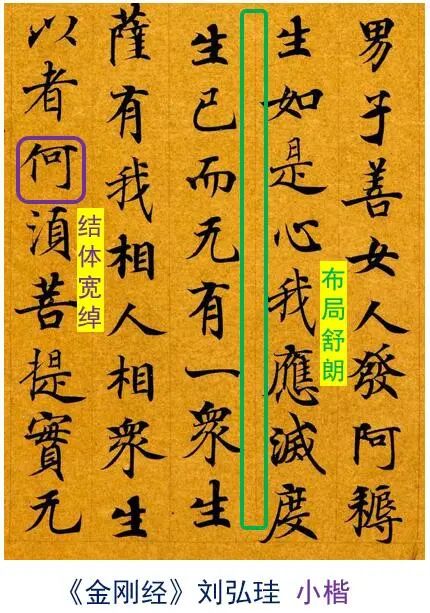 男子善女人發阿耨
生如是心我應滅度
生已而无有一衆生
薩有我相人相衆生
以者何須菩提實无
布局舒朗
结体宽绰
《金刚经》刘弘珪 小楷